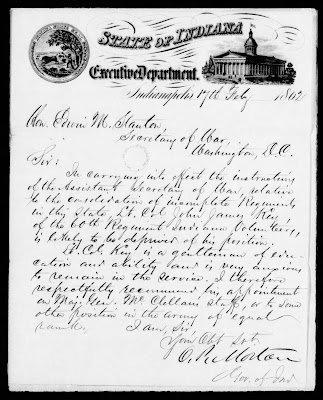 STATE OF INDIANA
Executive Department.
Indianapolis 17th Feby 1862
Hon. Edwin M. Stanton,
Secretary of War,
Washington, D.C.
Sir:
In carrying into effect the instructions
of the Assistant Secretary of War, relative
to the consolidation of incomplete Regiments
in this State, Lt. Col John James Key,
of the 60th Regiment Indiana Volunteers,
is likely to be deprived of his position.
Lt. Col. Key is a gentleman of edu-
cation and ability and is very anxious
to remain in the service. I therefore
respectfully recommend his appointment
on Maj. Gen. McClellan's staff, or to some
other position in the army of equal
rank. I am, Sir,
Your Obt Svt.
O. P. Morton
Gov. of Ind